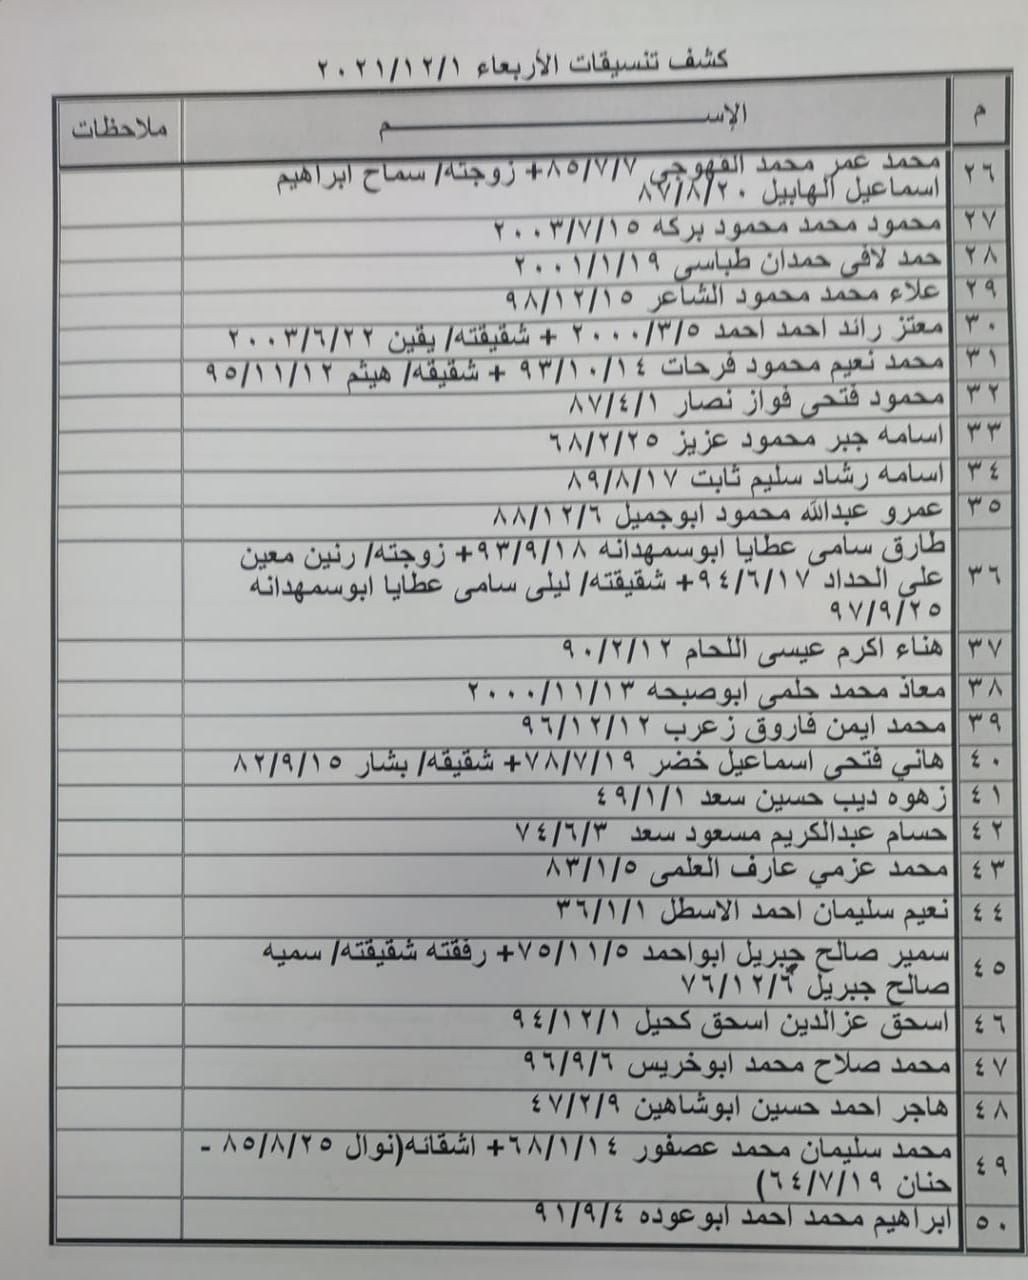 كشف تنسيقات الأربعاء ٢٠٢١/١٢/١
م الإســـــــــــــــم ملاحظات
٢٦ محمد عمر محمد القهوجي ٨٥/٧/٧+ زوجته/ سماح ابراهيم
اسماعيل الهابيل ٨٧/٨/٢٠
٢٧ محمود محمد محمود بركه ٢٠٠٣/٧/١٥
٢٨ حمد لافى حمدان طباسى ٢٠٠١/١/١٩
٢٩ علاء محمد محمود الشاعر ٩٨/١٢/١٥
٣٠ معتز رائد احمد احمد ٢٠٠٠/٣/٥ + شقيقته/ يقين ٢٠٠٣/٦/٢٢
٣١ محمد نعيم محمود فرحات ٩٣/١٠/١٤ + شقيقه/ هيثم ٩٥/١١/١٢
٣٢ محمود فتحى فواز نصار ٨٧/٤/١
٣٣ اسامه جبر محمود عزيز ٦٨/٢/٢٥
٣٤ اسامه رشاد سليم ثابت ٨٩/٨/١٧
٣٥ عمرو عبدالله محمود ابوجميل ٨٨/١٢/٦
٣٦ طارق سامى عطايا ابوسمهدانه ٩٣/٩/١٨+ زوجته/ رنين معين
على الحداد ٩٤/٦/١٧+ شقيقته/ ليلى سامى عطايا ابوسمهدانه
٩٧/٩/٢٥
٣٧ هناء اكرم عيسى اللحام ٩٠/٢/١٢
٣٨ معاذ محمد حلمى ابوصبحه ٢٠٠٠/١١/١٣
٣٩ محمد ايمن فاروق زعرب ٩٦/١٢/١٢
٤٠ هاني فتحى اسماعيل خضر ٧٨/٧/١٩+ شقيقه/ بشار ٨٢/٩/١٥
٤١ زهوه ديب حسين سعد ٤٩/١/١
٤٢ حسام عبدالكريم مسعود سعد ٧٤/٦/٣
٤٣ محمد عزمي عارف العلمى ٨٣/١/٥
٤٤ نعيم سليمان احمد الاسطل ٣٦/١/١
٤٥ سمير صالح جبريل ابواحمد ٧٥/١١/٥+ رفقته شقيقته/ سميه
صالح جبريل ٧٦/١٢/٦
٤٦ اسحق عزالدين اسحق كحيل ٩٤/١٢/١
٤٧ محمد صلاح محمد ابوخريس ٩٦/٩/٦
٤٨ هاجر احمد حسين ابوشاهين ٤٧/٢/٩
٤٩ محمد سليمان محمد عصفور ٦٨/١/١٤+ اشقائه(نوال ٨٥/٨/٢٥ -
حنان ٦٤/٧/١٩)
٥٠ ابراهيم محمد احمد ابوعوده ٩١/٩/٤